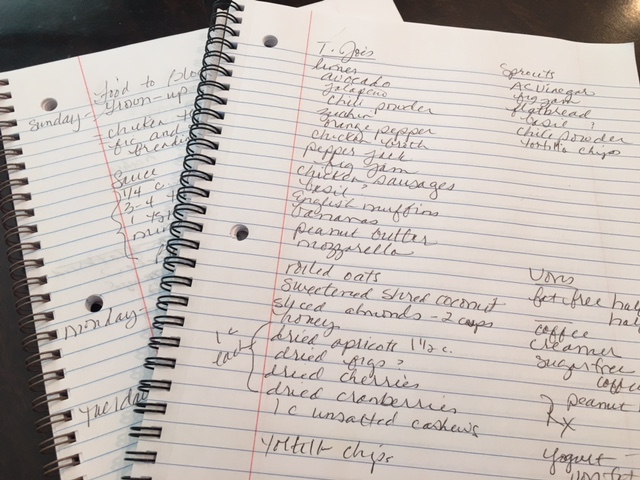 Food to
Grown-up
Sunday-
chicken
fig and
Sauce
1/4 c.
3-4
1
Monday-
Tuesday
T. Joe's
limes
avocado
jalapeno
chili powder
zucchini
orange pepper
chicken broth
pepper jack
fig jam
chicken sausages
basil?
english muffins
bananas
peanut butter
mozzarella
rolled oats
sweetened shred coconut
sliced almonds - 2 cups
honey
1 c
each
dried apricots 1 1/2 c.
dried figs?
dried cherries
dried cranberries
1 c unsalted cashews
tortilla chips
Sprouts
AC Vinegar
fig jam
flatbread
basil?
chili powder
tortilla chips
Vons
fat free half
half
coffee
creamer
sugar free
coffee
peanut
Rx
yogurt -